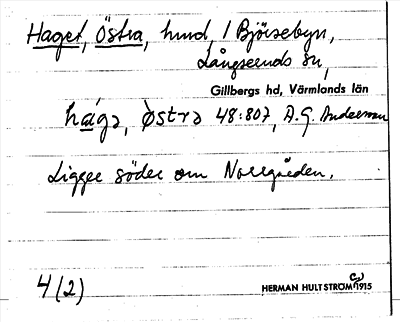 Haget, Östra, hmd, / Björsebyn,
Långseruds sn,
Gillbergs hd, Värmlands län
hága, östra 48:807, A.G. Anderson
Ligger söder om Norrgården.
4 (2)
HERMAN HULTSTRÖM 1915